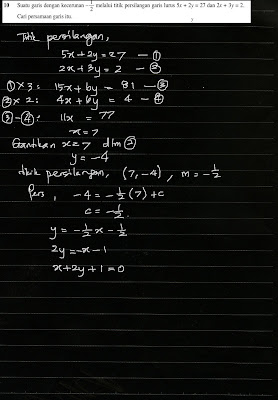 10 Suatu garis dengan kecerunan -1/2 melalui titik persilangan garis lurus 5x + 2y = 27 dan 2x + 3y = 2.
Cari persamaan garis itu.
Titik persilangan,
5x + 2y = 27 — ①
2x + 3y = 2 — ②
① × 3 : 15x + 6y = 81 — ③
② × 2 : 4x + 6y = 4 — ④
③ - ④ : 11x = 77
x = 7
Gantikan x = 7 dlm ②
y = -4
titik persilangan, (7, -4), m = -1/2
Pers, -4 = -1/2 (7) + c
c = -1/2.
y = -1/2 x - 1/2
2y = -x - 1
x + 2y + 1 = 0